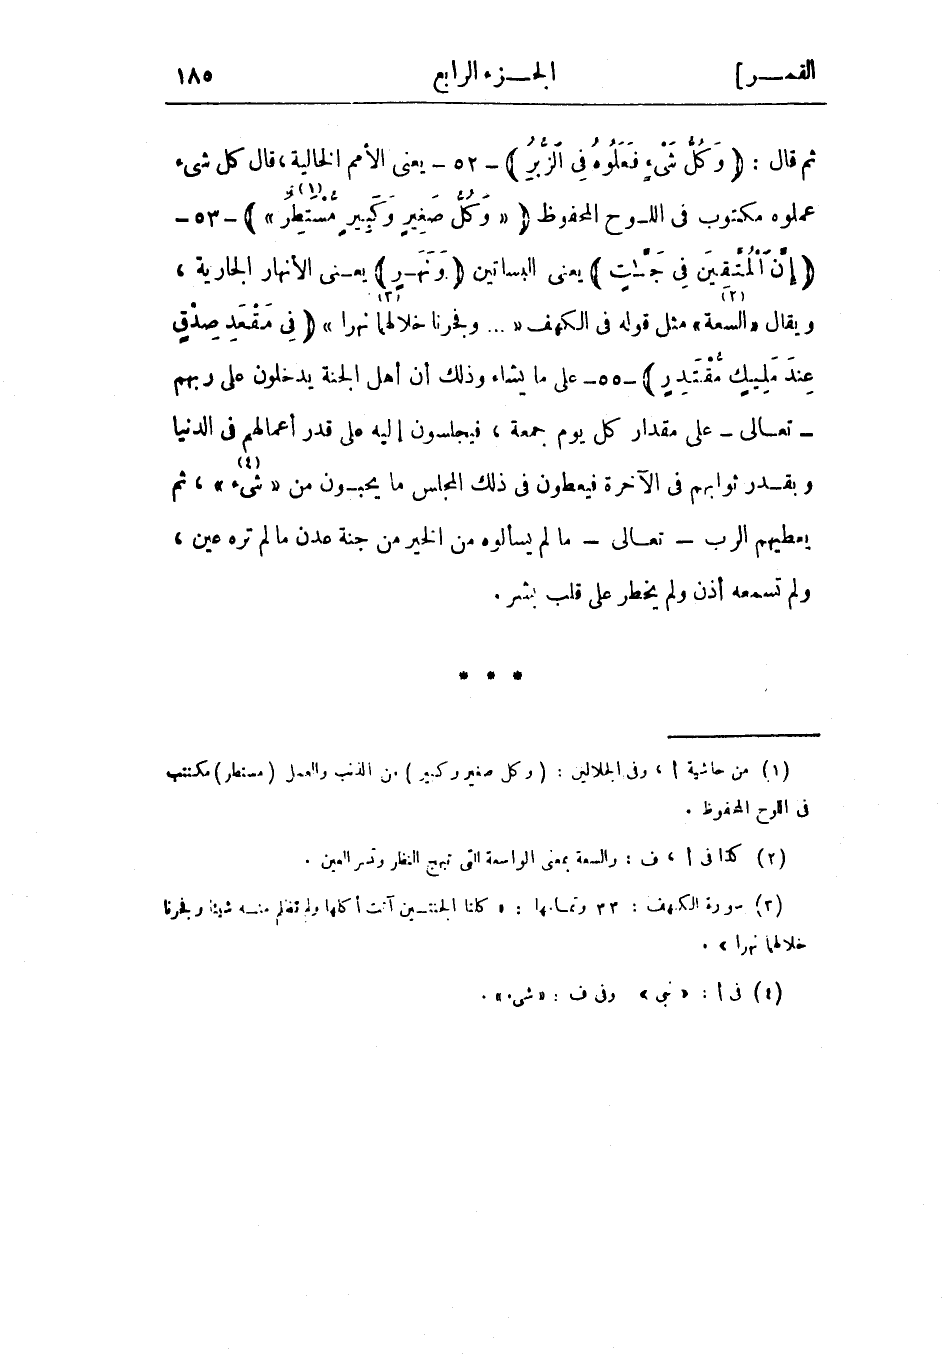 القمــر ]
الجــزء الرابع
١٨٥
ثم قال : ( وَكُلُّ شَىْءٍ فَعَلُوهُ فِى ٱلزُّبُرِ ) - ٥٢ - يعنى الأمم الخالية ، قال كل شىء
عملوه مكتوب فى اللـوح المحفوظ ( « وَكُلُّ صَغِيرٍ وَكَبِيرٍ مُّسْتَطَرٌ (١) » ) - ٥٣ -
( إِنَّ ٱلْمُتَّقِينَ فِى جَنَّـٰتٍ ) يعنى البساتين ( وَنَهَـرٍ ) يعـنى الأنهار الجارية ،
و يقال « السعة (٢) » مثل قوله فى الكهف « ... وفجرنا خلالهما نهرا (٣) » ( فِى مَقْعَدِ صِدْقٍ
عِندَ مَلِيكٍ مُّقْتَدِرٍ ) - ٥٥ - على ما يشاء وذلك أن أهل الجنة يدخلون على ربهم
- تعـالى - على مقدار كل يوم جمعة ، فيجلسون إليه على قدر أعمالهم فى الدنيا
و بقــدر ثوابهم فى الآخرة فيعطون فى ذلك المجلس ما يحبـون من « شىء (٤) » ، ثم
يعطيهم الرب - تعـالى - ما لم يسألوه من الخير من جنة عدن ما لم تره عين ،
ولم تسمعه أذن ولم يخطر على قلب بشر .
* * *
(١) من حاشية أ ، وفى الجلالين : ( وكل صغير وكبير ) من الذنب والعمل ( مستطر ) مكتتب
فى اللوح المحفوظ .
(٢) كذا فى أ ، ف : والسعة بمعنى الواسعة التى تبهج النظار وتسر العين .
(٣) سورة الكهف : ٣٣ وتمـامها : « كلتا الجنتـين آتت أكلها ولم تظلم منـه شيئا وفجرنا
خلالهما نهرا » .
(٤) فى أ : « نبى » وفى ف : « شىء » .